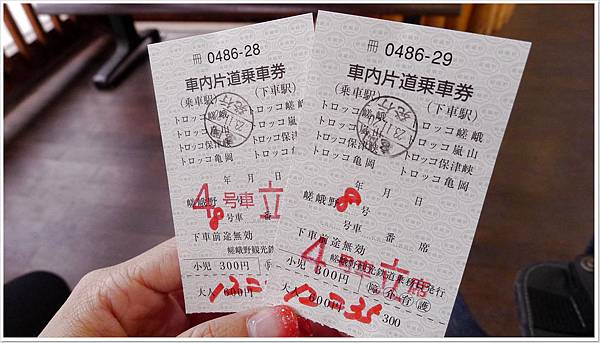 冊 0486-28
車内片道乗車券
(乗車駅) (下車駅)
トロッコ嵯峨
トロッコ嵐山
トロッコ保津峡
トロッコ亀岡
発行
年 月 日
嵯峨野 8 号
4 号車 立
号車 番
下車前途無効
嵯峨野観光鉄道
小児 300円
大人 600円
冊 0486-29
車内片道乗車券
(乗車駅) (下車駅)
トロッコ嵯峨 トロッコ嵯峨
トロッコ嵐山 トロッコ嵐山
トロッコ保津峡 トロッコ保津峡
トロッコ亀岡 トロッコ亀岡
発行
年 月 日
嵯峨野 8 号
号車 番 席
下車前途無効
4 号車 立席
嵯峨野観光鉄道乗務員発行
小児 300円 障・介・育・護
大人 600円 300